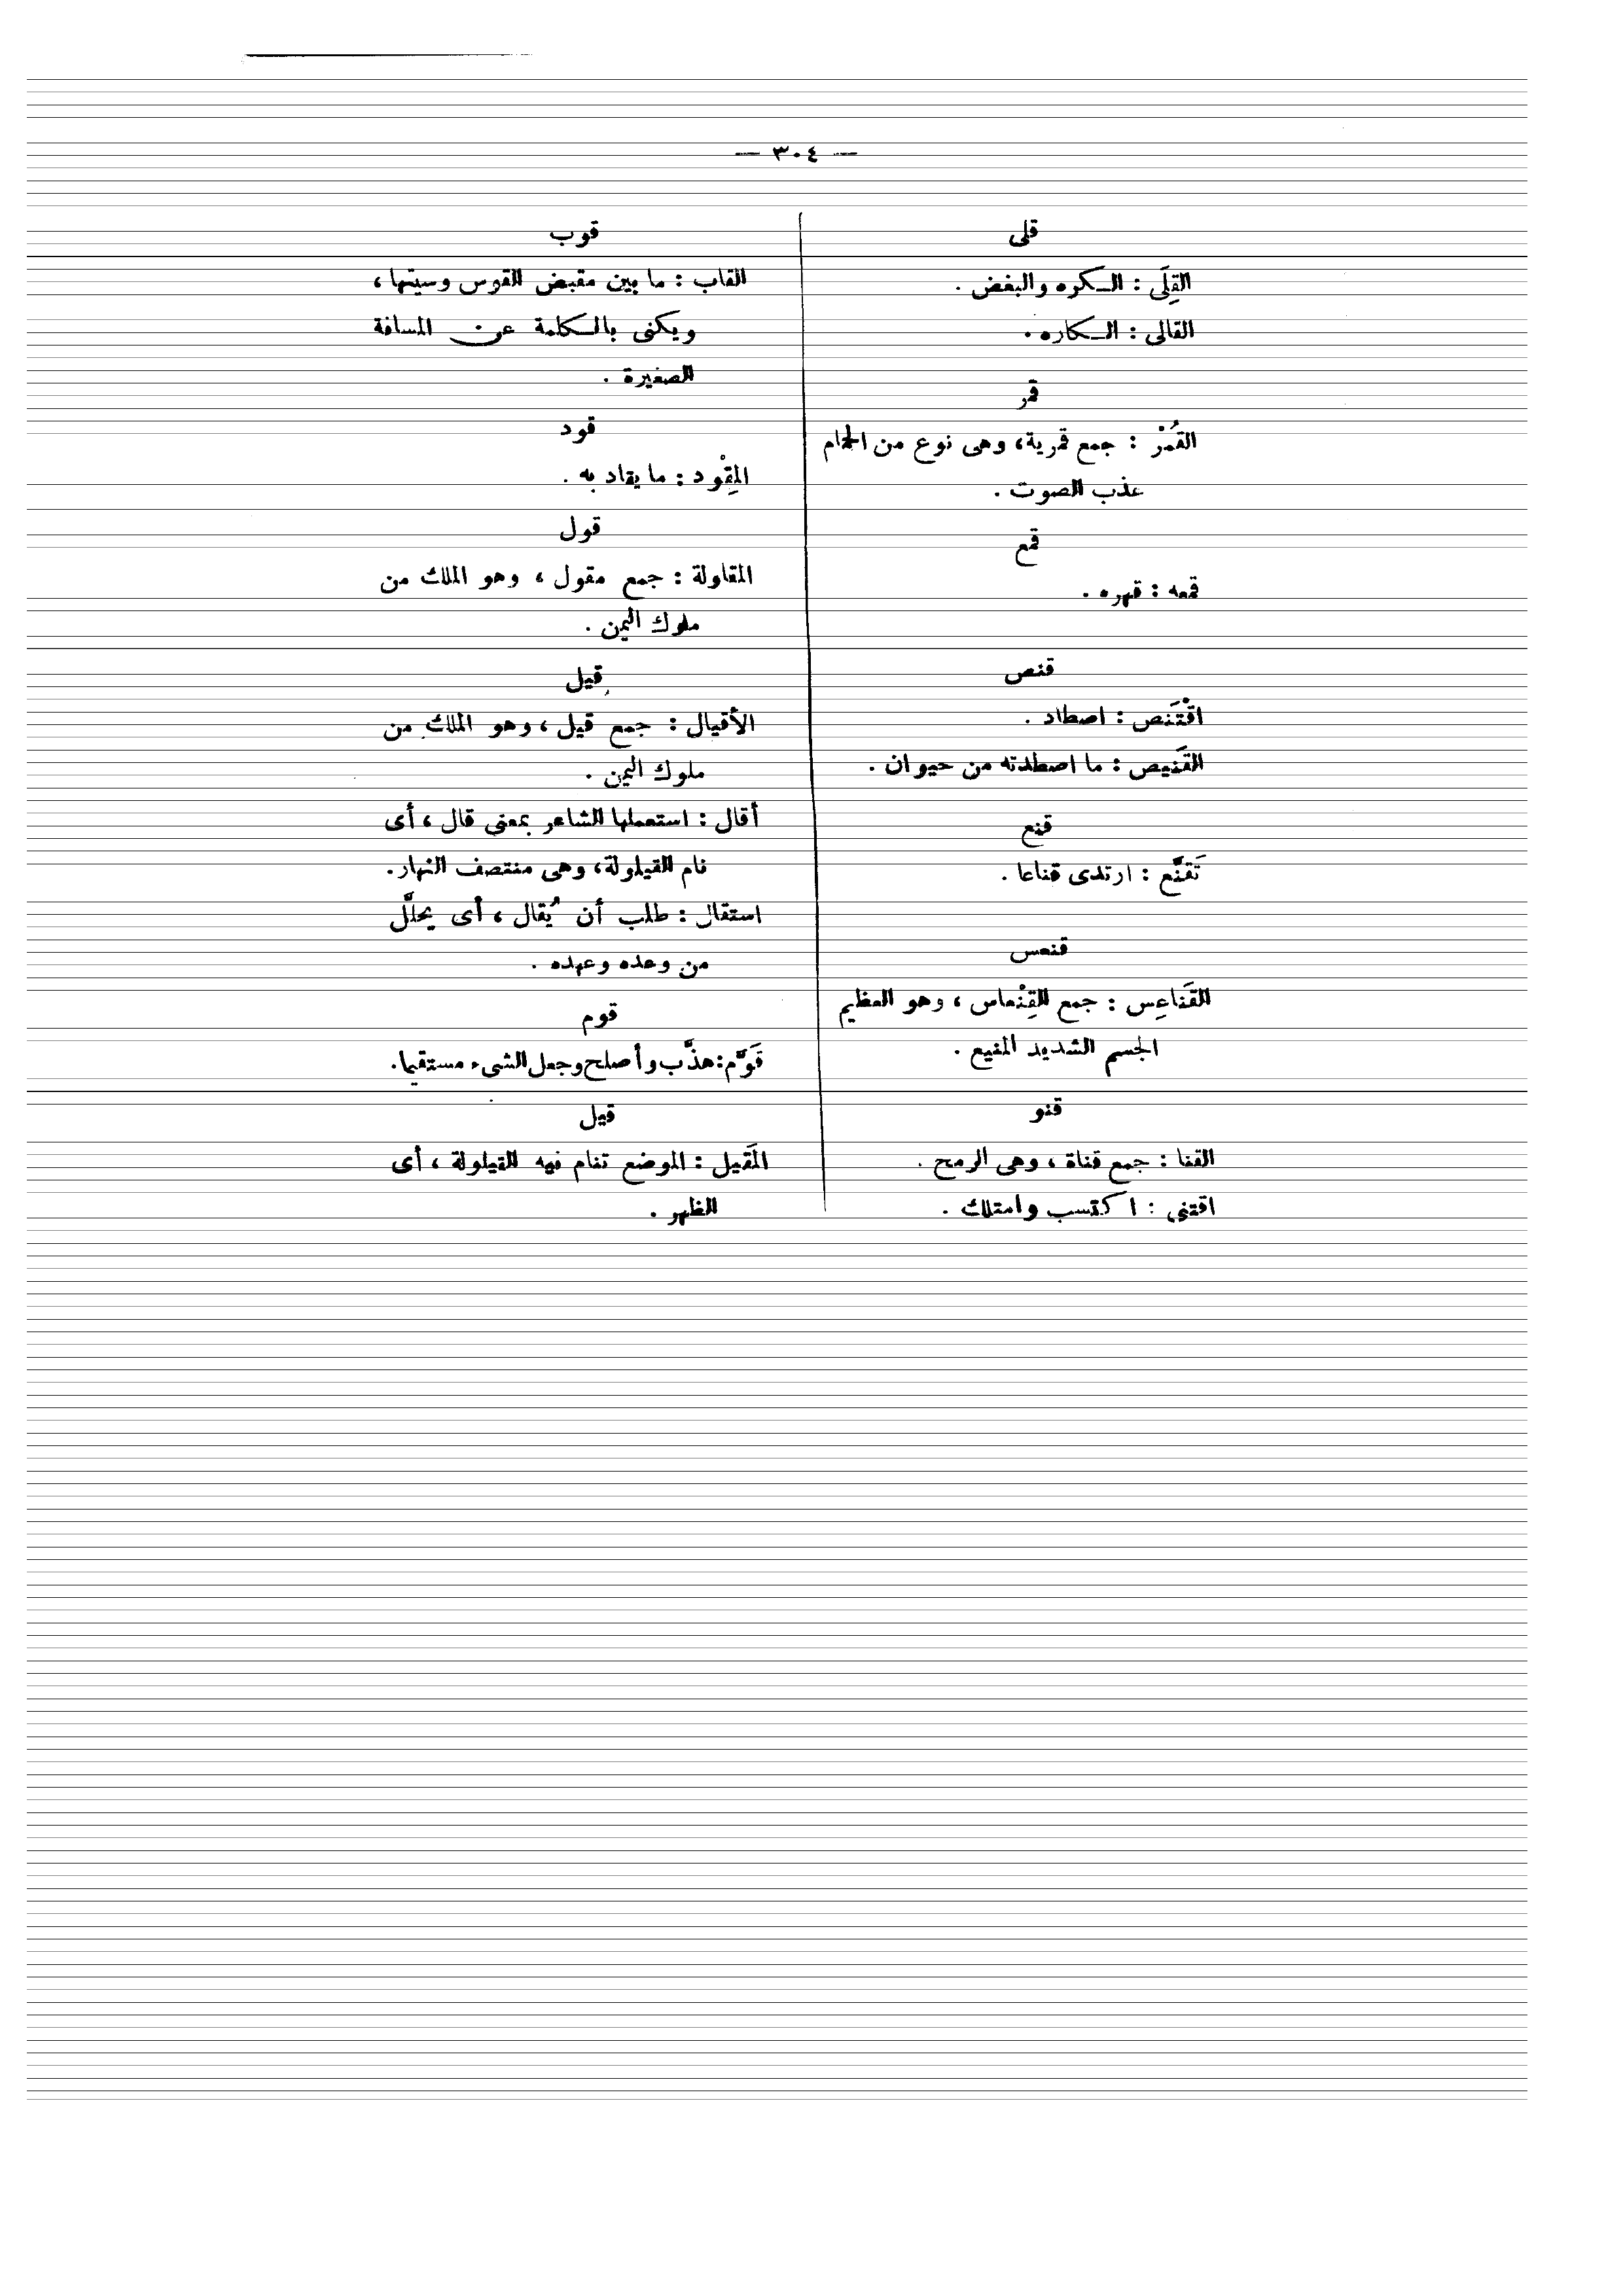 — ٣٠٤ —
قلى
القِلَى : الكره والبغض .
القالى : الكاره .
قمر
القُمْر : جمع قمرية، وهى نوع من الحمام
عذب الصوت .
قمع
قمعه : قهره .
قنص
اقْتَنَص : اصطاد .
القَنيص : ما اصطدته من حيوان .
قنع
تَقنَّع : ارتدى قناعا .
قنعس
القَناعِس : جمع القِنْعاس ، وهو العظيم
الجسم الشديد المنيع .
قنو
القنا : جمع قناة ، وهى الرمح .
اقتنى : اكتسب وامتلك .
قوب
القاب : ما بين مقبض القوس وسيتها ،
ويكنى بالكلمة عن المسافة
الصغيرة .
قود
المِقْود : ما يقاد به .
قول
المقاولة : جمع مقول ، وهو الملك من
ملوك اليمن .
قيل
الأقيال : جمع قيل ، وهو الملك من
ملوك اليمن .
أقال : استعملها الشاعر بمعنى قال ، أى
نام القيلولة، وهى منتصف النهار.
استقال : طلب أن يُقال ، أى يحلَّل
من وعده وعهده .
قوم
قَوَّم : هذَّب وأصلح وجعل الشىء مستقيما.
قيل
المَقيل : الموضع تنام فيه القيلولة ، أى
الظهر .